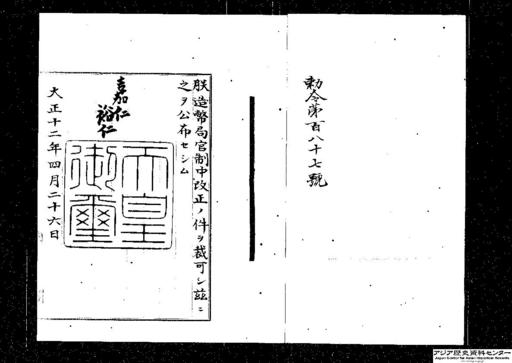 勅令第百八十七號
朕造幣局官制中改正ノ件ヲ裁可シ茲ニ
之ヲ公布セシム
嘉仁
裕仁
天皇
御璽
大正十二年四月二十六日
アジア歴史資料センター
Japan Center for Asian Historical Records